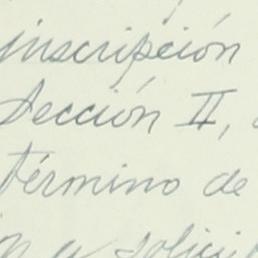 inscripción
Sección II,
término de
a solici